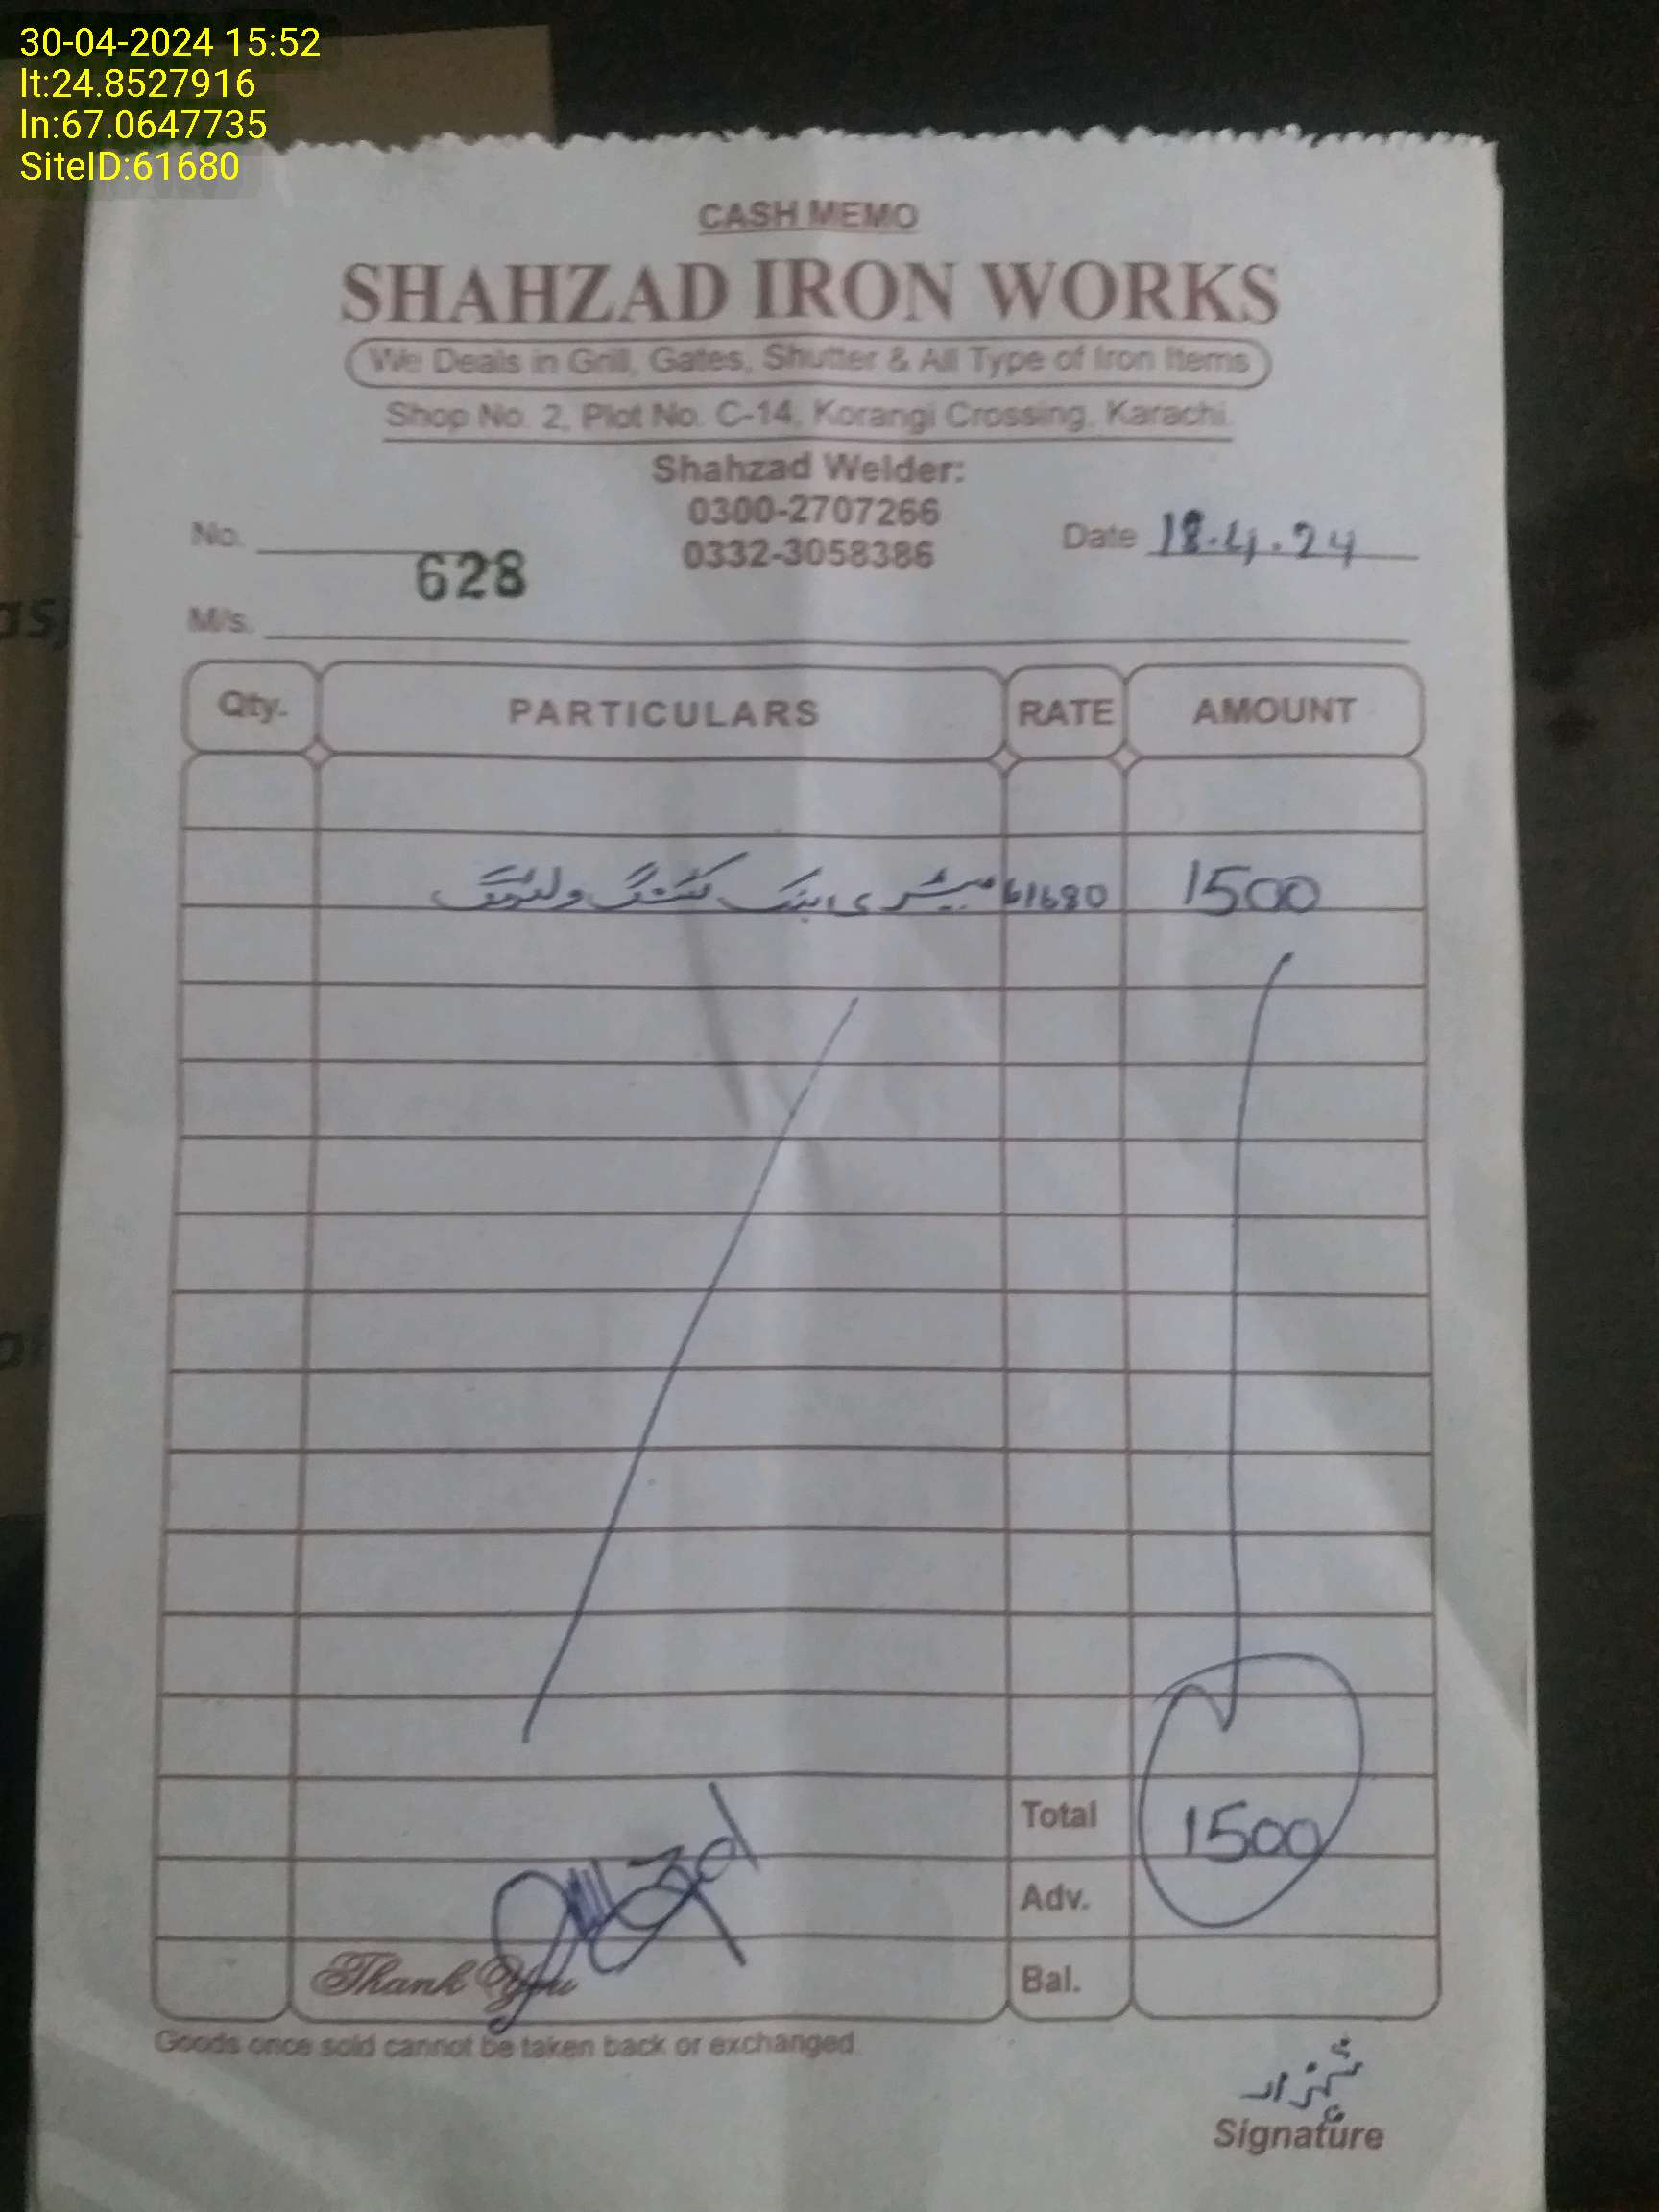 30-04-2024 15:52
lt:24.8527916
ln:67.0647735
SiteID:61680
CASH MEMO
SHAHZAD IRON WORKS
We Deals in Grill, Gates, Shutter & All Type of Iron Items
Shop No. 2, Plot No. C-14, Korangi Crossing, Karachi.
Shahzad Welder:
0300-2707266
0332-3058386
No. 628
Date 18.4.24
M/s.
Qty. PARTICULARS RATE AMOUNT
61680 کٹنگ ولڈنگ 1500
Total 1500
Adv.
Bal.
Thank You
Goods once sold cannot be taken back or exchanged.
شہزاد
Signature